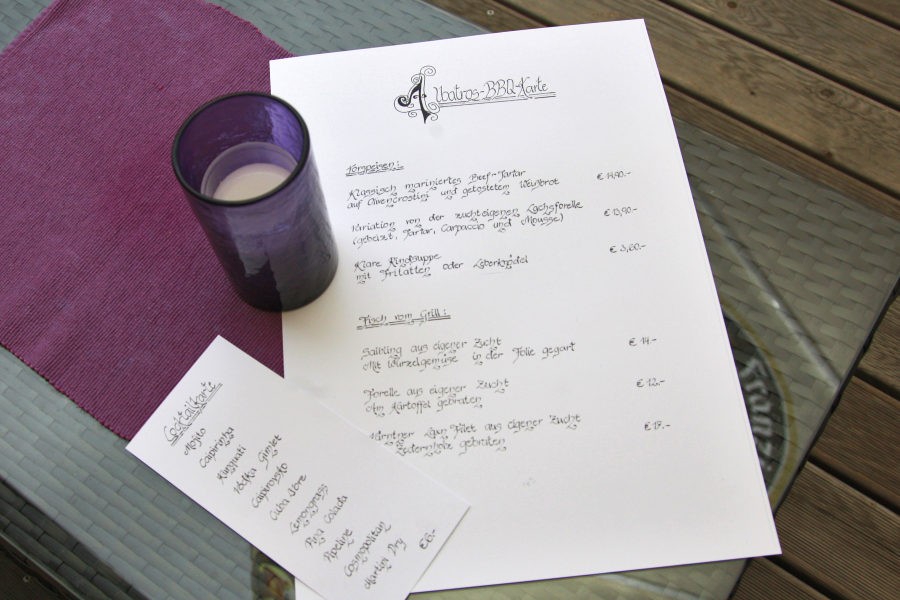 Albatros-BBQ-Karte
Vorspeisen:
Klassisch mariniertes Beef-Tartar
auf Olivencrostini und getostetem Weißbrot
€ 14,90.-
Variation von der zuchteigenen Lachsforelle
(gebeizt, Tartar, Carpaccio und Mousse)
€ 13,90-
Klare Rindsuppe
mit Fritatten oder Leberknödel
€ 3,60.-
Fisch vom Grill:
Saibling aus eigener Zucht
Mit Wurzelgemüse in der Folie gegart
€ 14.-
Forelle aus eigener Zucht
Am Kartoffel gebraten
€ 12.-
Kärntner Filet aus eigener Zucht
Zedernholz gebraten
€ 17.-
Cocktailkarte
Mojito
Caipirinha
Vodka Gimlet
Cuba Libre
Lemongrass
Pina Colada
Pipeline
Cosmopolitan
Martini Dry
€6.-